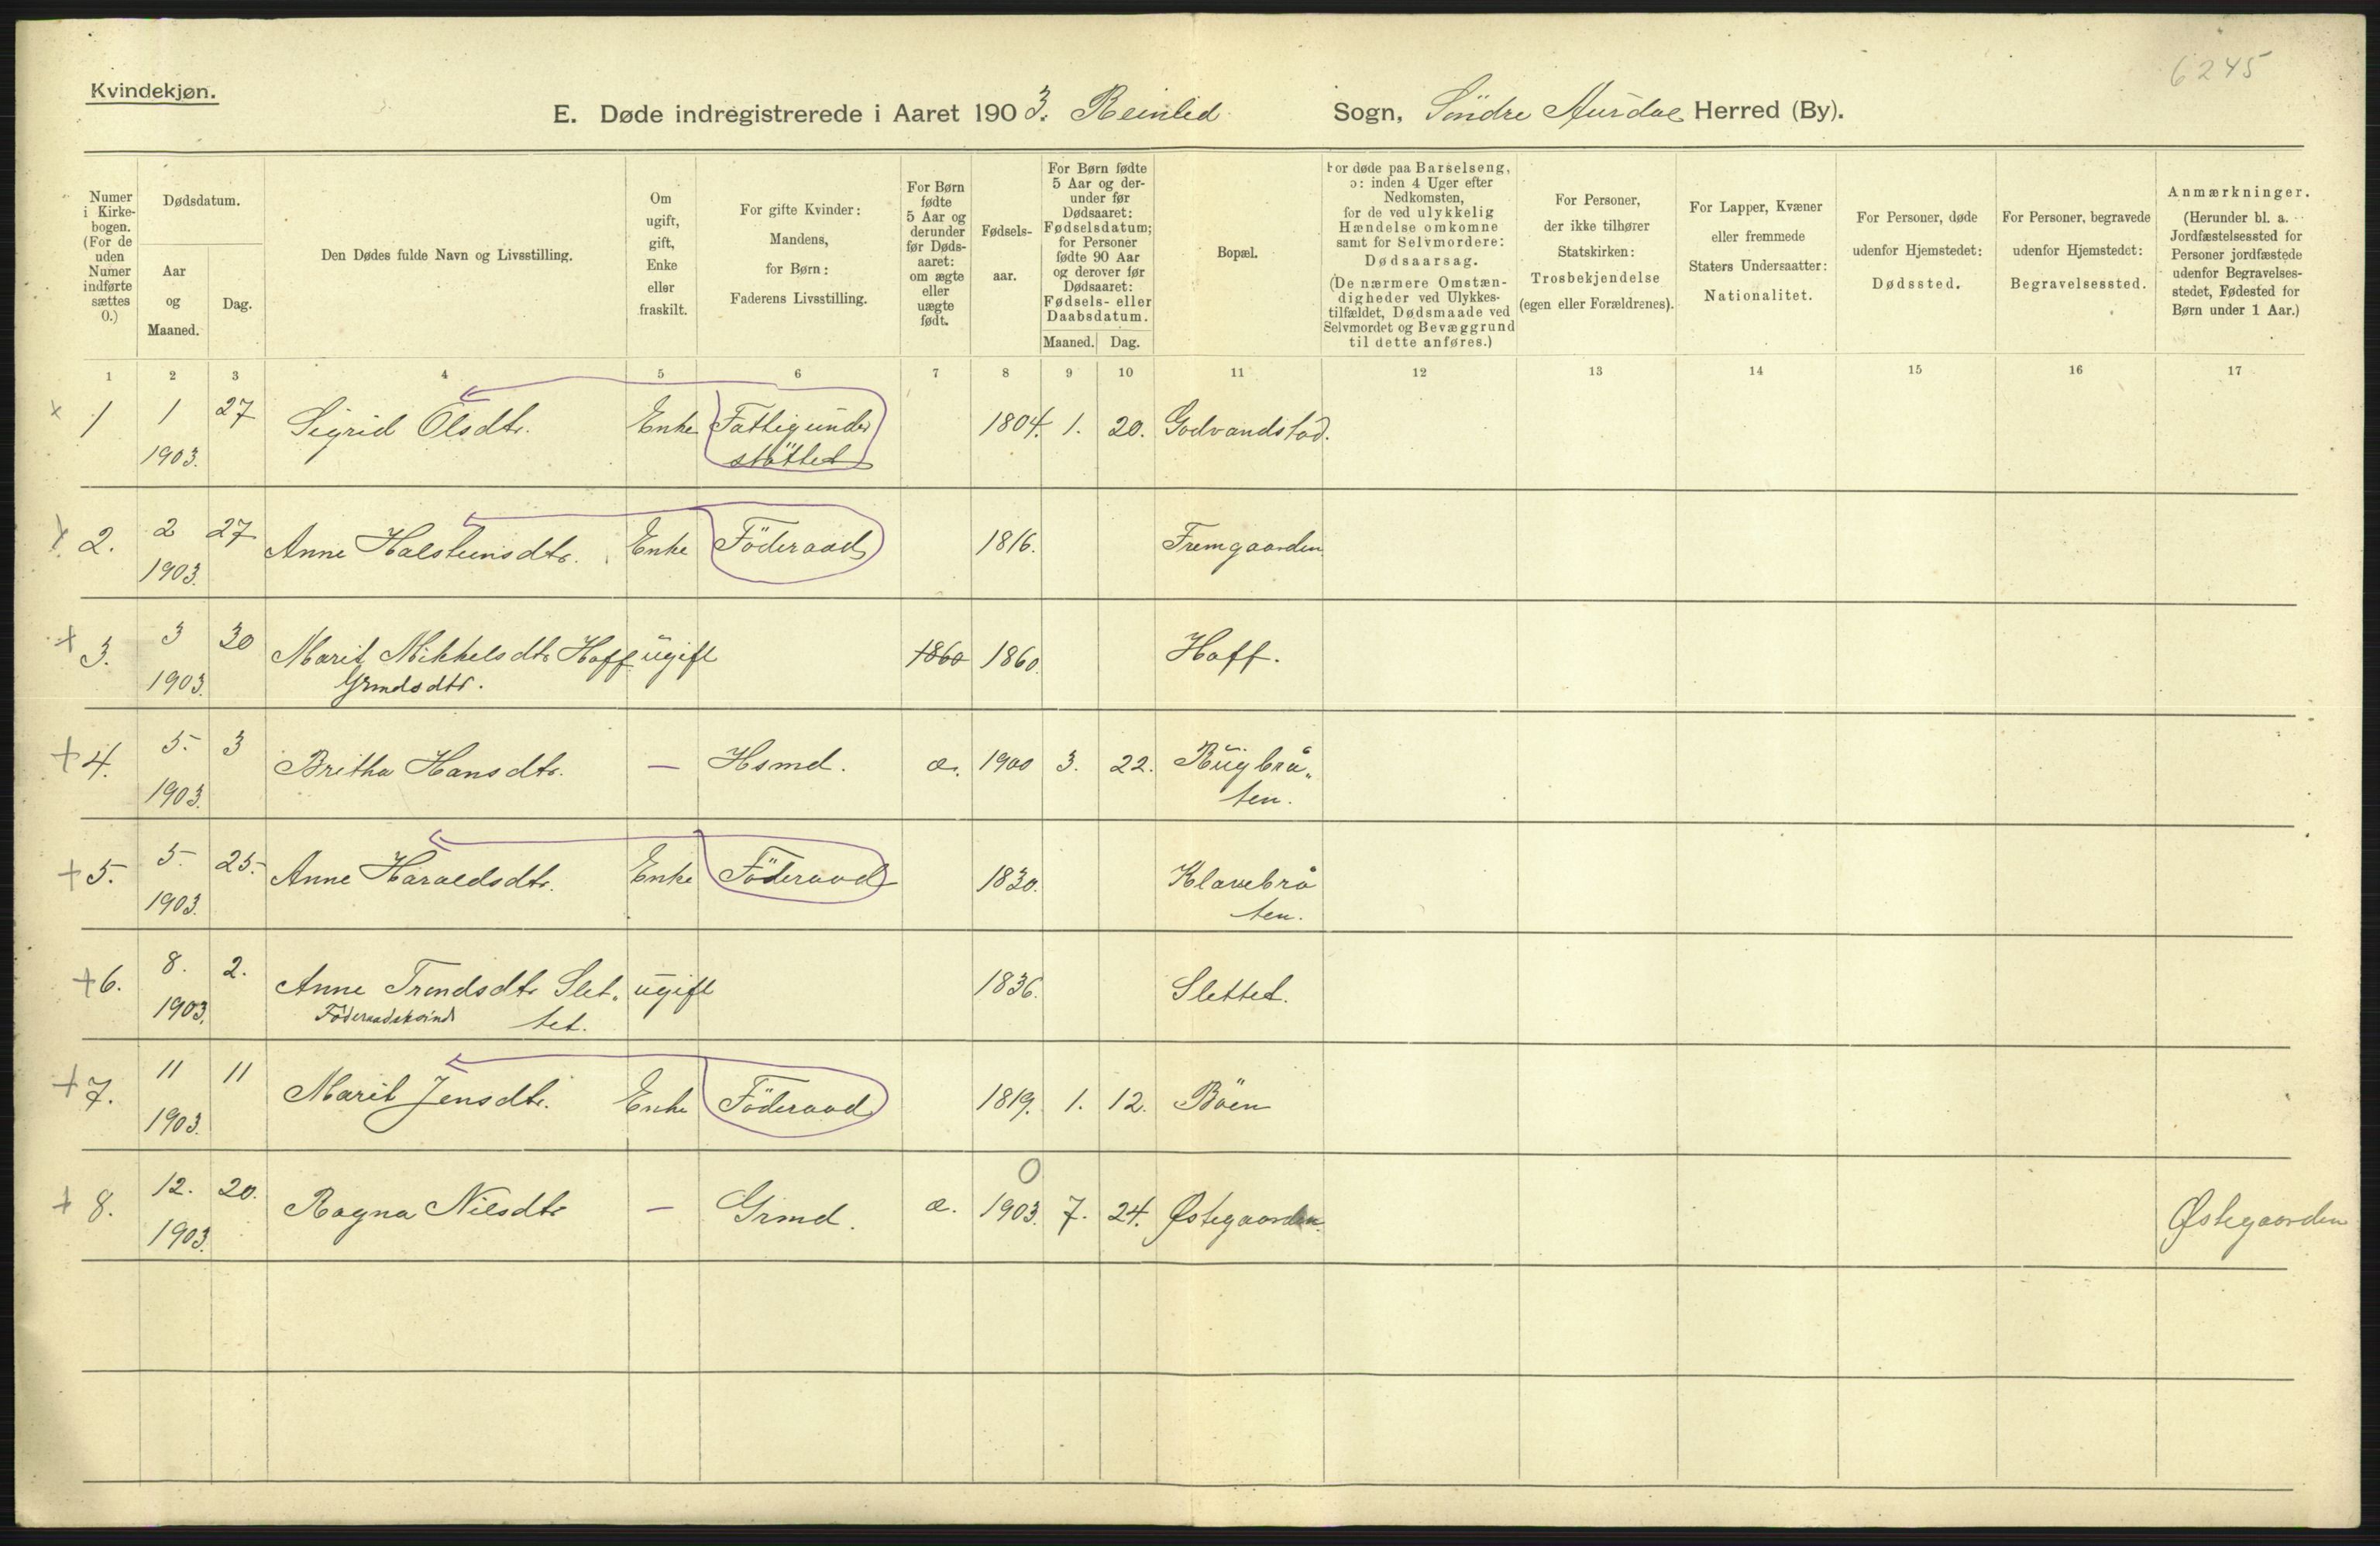 6245
Kvindekjøn.
E. Døde indregistrerede i Aaret 1903. Reinlid Sogn, Söndre Aurdal Herred (By).
Numer i Kirkebogen. (For de uden Numer indførte sættes 0.)
Dødsdatum.
Aar og Maaned.
Dag.
Den Dødes fulde Navn og Livsstilling.
Om ugift, gift, Enke eller fraskilt.
For gifte Kvinder: Mandens, for Børn: Faderens Livsstilling.
For Børn fødte 5 Aar og derunder før Dødsaaret: om ægte eller uægte født.
Fødselsaar.
For Børn fødte 5 Aar og derunder før Dødsaaret: Fødselsdatum; for Personer fødte 90 Aar og derover før Dødsaaret: Fødsels- eller Daabsdatum.
Maaned. Dag.
Bopæl.
For døde paa Barselseng, ɔ: inden 4 Uger efter Nedkomsten, for de ved ulykkelig Hændelse omkomne samt for Selvmordere: Dødsaarsag. (De nærmere Omstændigheder ved Ulykkestilfældet, Dødsmaade ved Selvmordet og Bevæggrund til dette anføres.)
For Personer, der ikke tilhører Statskirken: Trosbekjendelse (egen eller Forældrenes).
For Lapper, Kvæner eller fremmede Staters Undersaatter: Nationalitet.
For Personer, døde udenfor Hjemstedet: Dødssted.
For Personer, begravede udenfor Hjemstedet: Begravelsessted.
Anmærkninger. (Herunder bl. a. Jordfæstelsessted for Personer jordfæstede udenfor Begravelsesstedet, Fødested for Børn under 1 Aar.)
1 2 3 4 5 6 7 8 9 10 11 12 13 14 15 16 17
× 1 1 27 Sigrid Olsdtr. Enke Fattigunder 1804. 1. 20. Godvandstad.
1903. støttet
× 2. 2 27 Anne Halsteinsdtr. Enke Föderaad 1816. Fremgaarden
1903.
+ 3. 3 30 Marit Mikkelsdtr Hoff ugift 1860 1860. Hoff.
1903. Grmdsdtr.
+ 4. 5. 3 Britha Hansdtr. — Hsmd. æ. 1900 3. 22. Rugbrå„
1903. ten.
+ 5. 5. 25. Anne Haraldsdtr. Enke Föderaad 1830. Klavebrå
1903. ten.
+ 6. 8. 2. Anne Trondsdtr Slet„ ugift 1836. Slettet.
1903. Föderaadskvinde tet.
+ 7. 11 11 Marit Jensdtr. Enke Föderaad 1819. 1. 12. Böen
1903.
0
+ 8. 12. 20. Ragna Nilsdtr — Grmd. æ. 1903. 7. 24. Østegaarden. Østegaarden
1903.